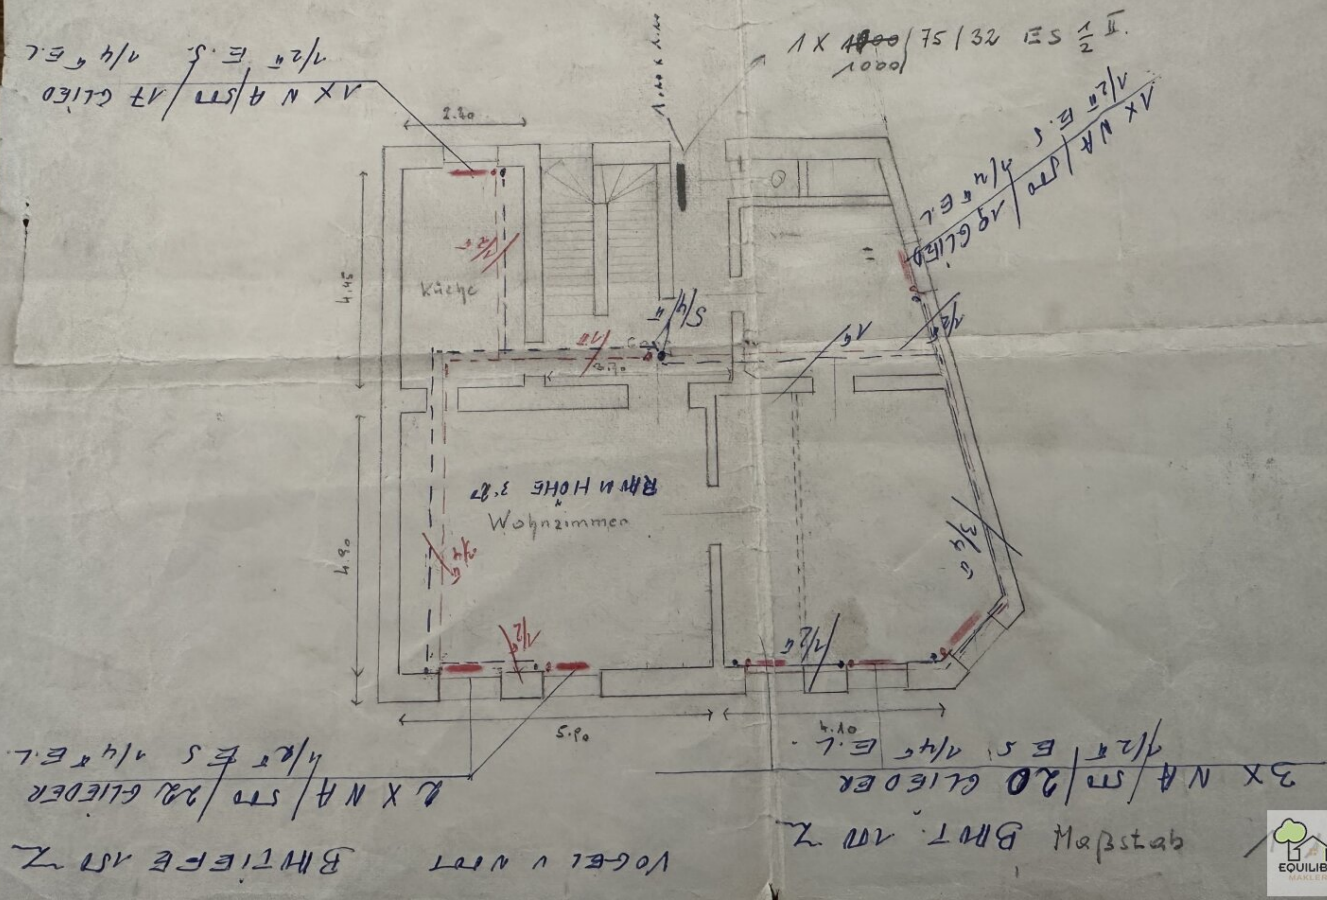 1 X 1000/75/32 ES 1/2" II.
1000
1 X NA/500/17 GLIED
1/2" E.S. 1/4" E.L
1 X NA/500/19 GLIED
1/2" E.S 1/4" E.L
2.20
4.45
Küche
1/2"
1"
5/4"
3.70
1"
1/2"
4.90
RAUMHÖHE 3.20
Wohnzimmer
3/4"
3/4"
1/2"
1/2"
5.90
4.10
2 X NA/500/22 GLIEDER
1/2" ES 1/4" E.L.
3 X NA/500/20 GLIEDER
1/2" ES. 1/4" E.L.
VOGEL U NOOT BAUTIEFE 150
BAUT. 100
Maßstab
EQUILIB
MAKLER